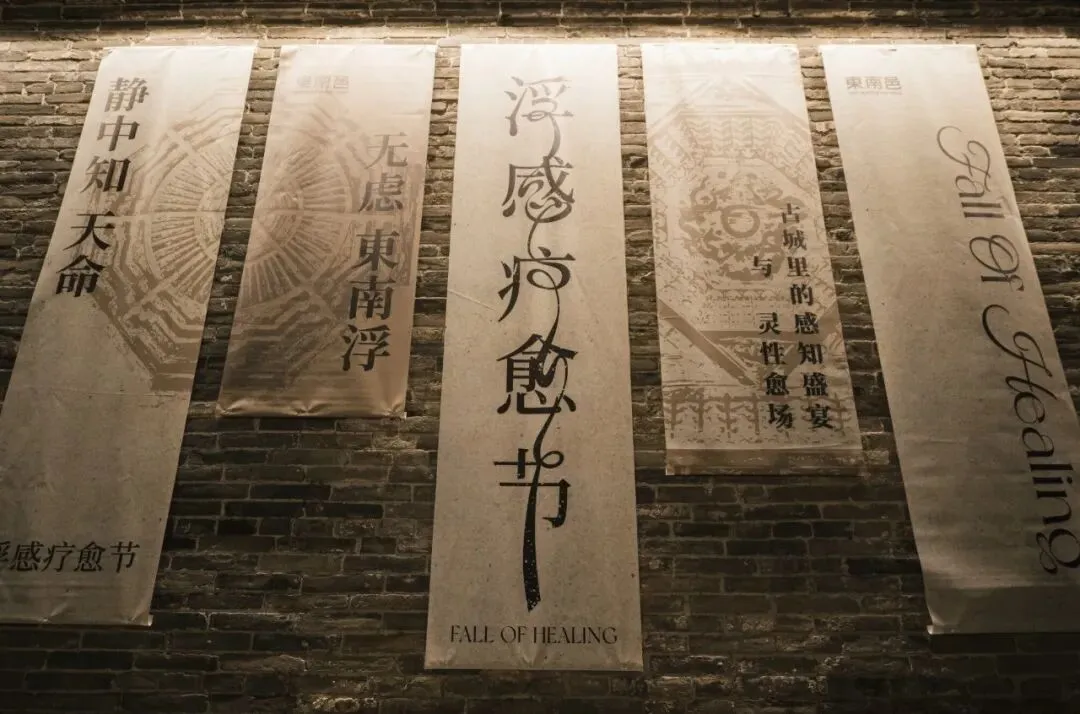 静中知天命
浮感疗愈节
東南邑
无虑東南浮
浮感疗愈节
FALL OF HEALING
古城里的感知盛宴
与灵性愈场
東南邑
Fall Of Healing